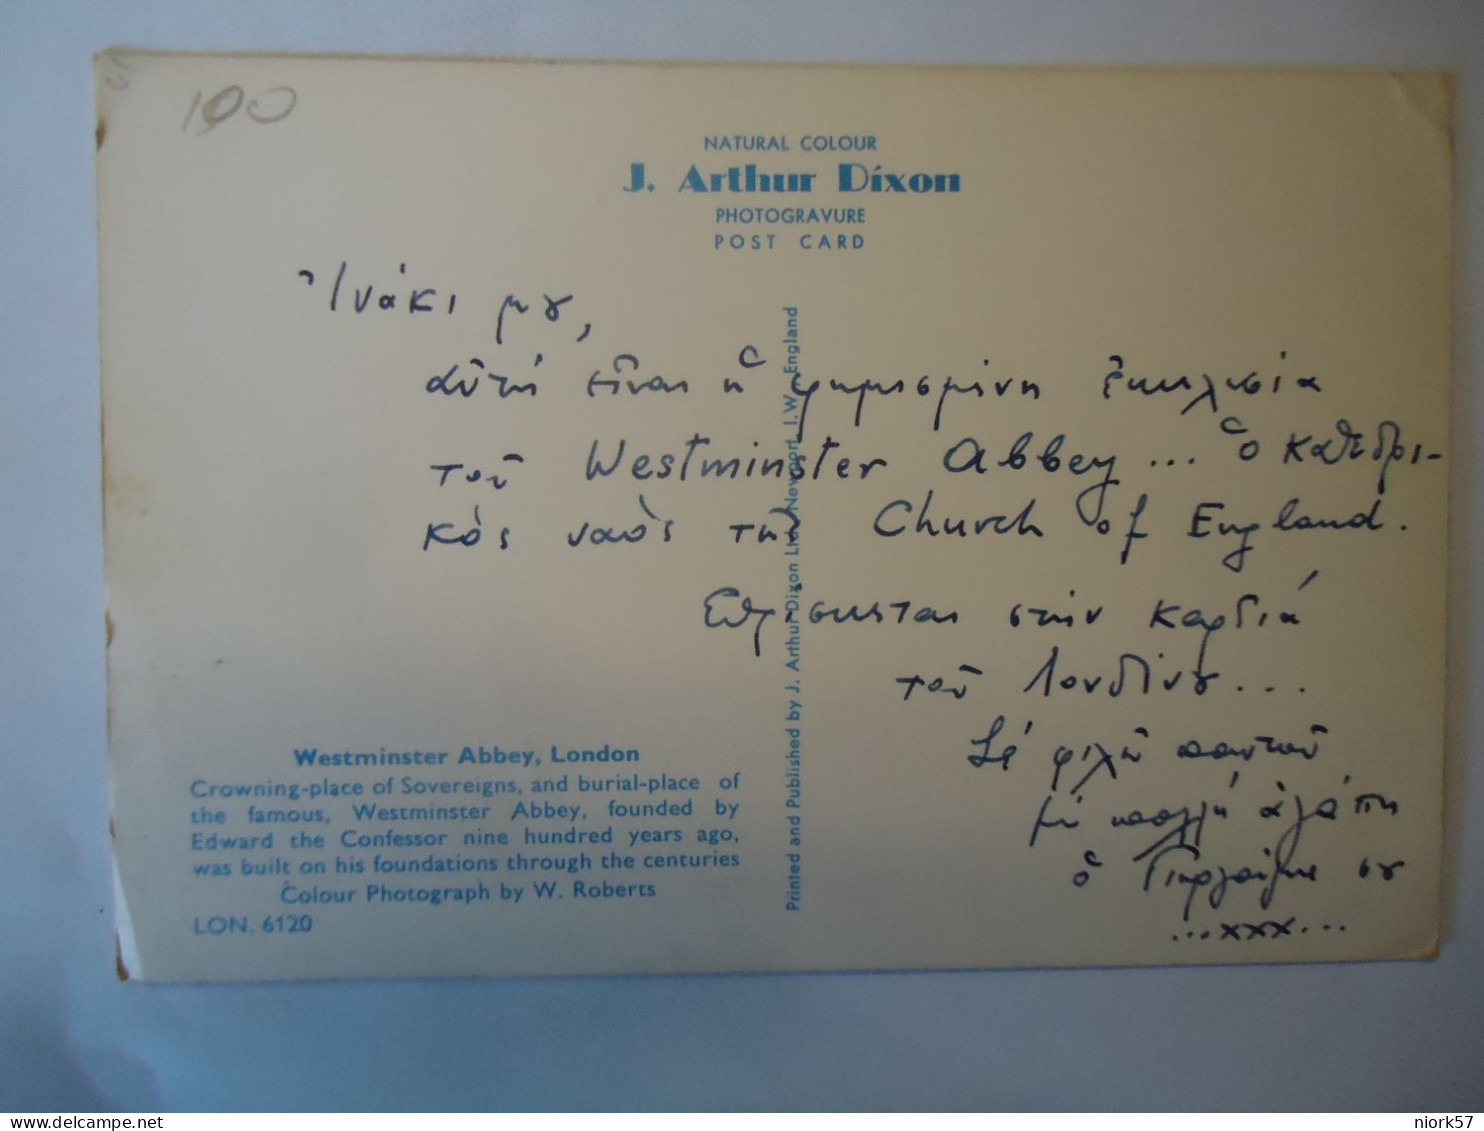 100
NATURAL COLOUR
J. Arthur Dixon
PHOTOGRAVURE
POST CARD
Ἰνάκι μου,
αὐτή εἶναι ἡ φημισμένη ἐκκλησία
τοῦ Westminster Abbey... ὁ καθεδρι-
κὸς ναὸς τῆς Church of England.
Εὑρίσκεται στήν καρδιά
τοῦ Λονδίνου...
Σέ φιλῶ παντοῦ
μέ πολλή ἀγάπη
ὁ σου
...xxx...
Printed and Published by J. Arthur Dixon Ltd. Newport I.W. England
Westminster Abbey, London
Crowning-place of Sovereigns, and burial-place of
the famous, Westminster Abbey, founded by
Edward the Confessor nine hundred years ago,
was built on his foundations through the centuries
Colour Photograph by W. Roberts
LON. 6120
niork57